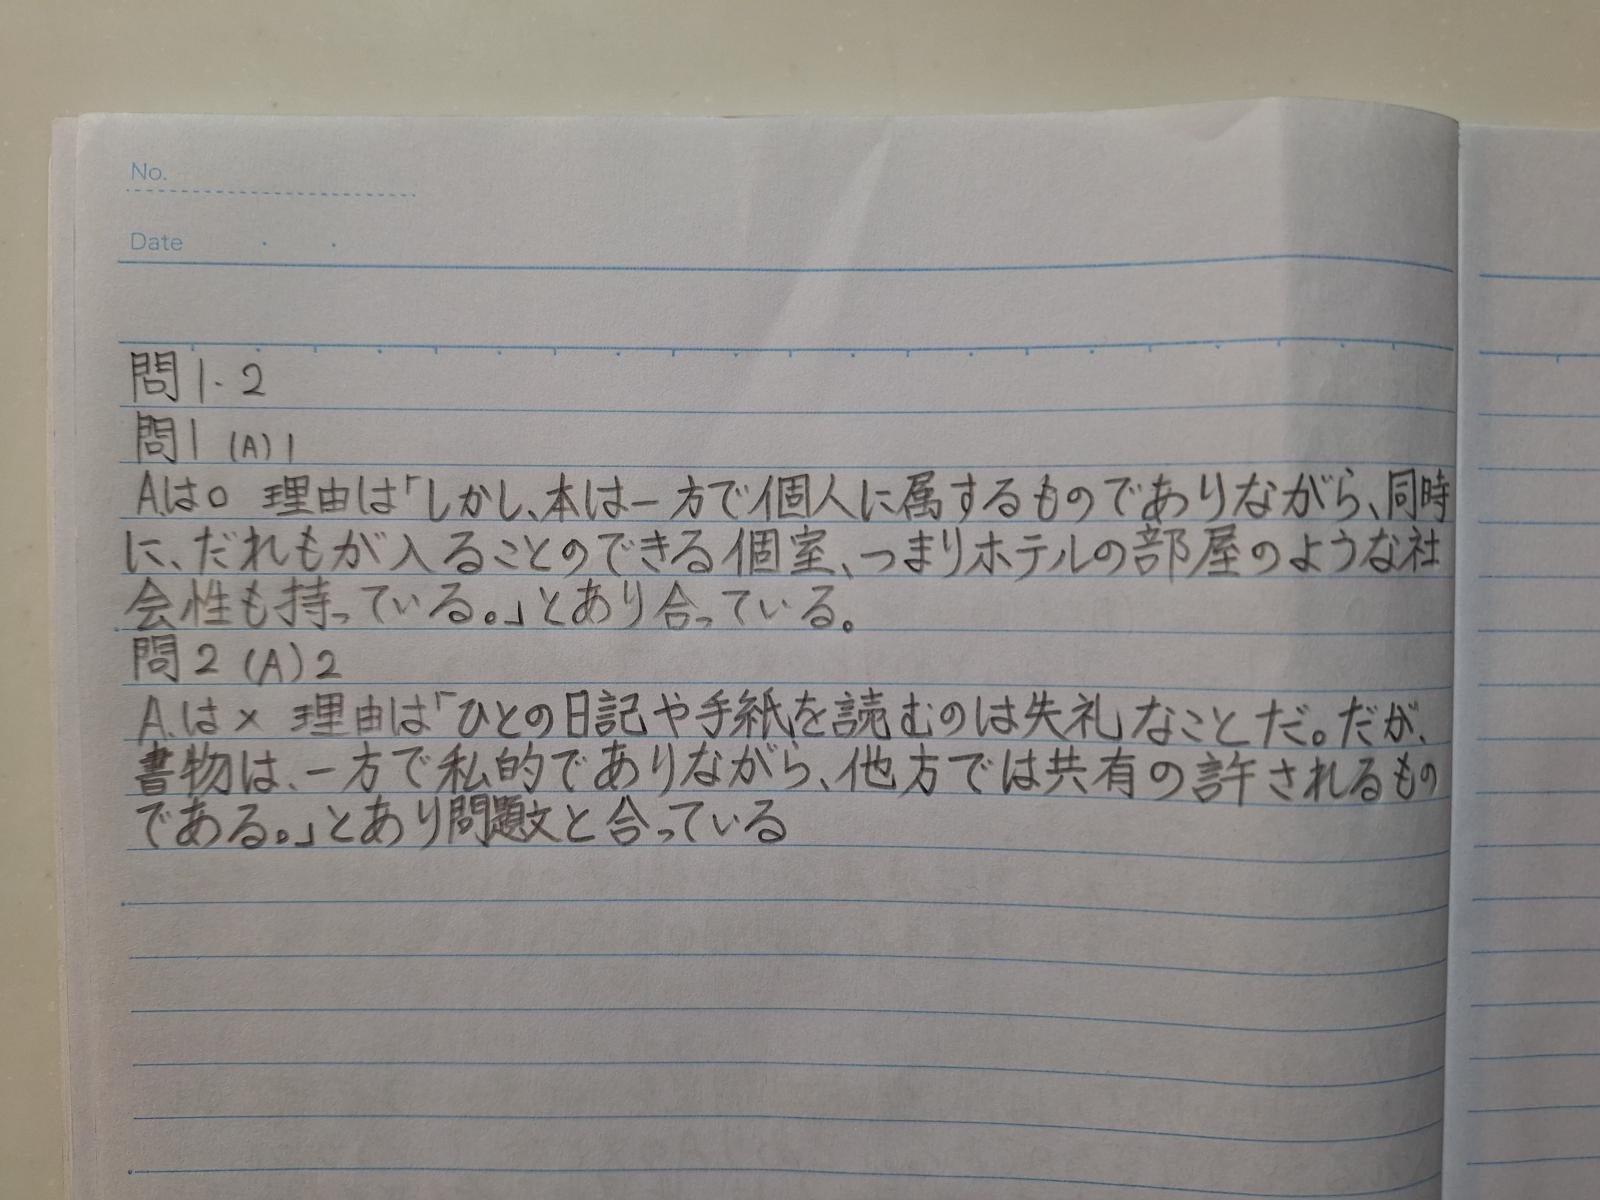 No.
Date
問1.2
問1 (A)1
Aは○ 理由は「しかし、本は一方で個人に属するものでありながら、同時
に、だれもが入ることのできる個室、つまりホテルの部屋のような社
会性も持っている。」とあり合っている。
問2 (A)2
A.は× 理由は「ひとの日記や手紙を読むのは失礼なことだ。だが、
書物は、一方で私的でありながら、他方では共有の許されるもの
である。」とあり問題文と合っている